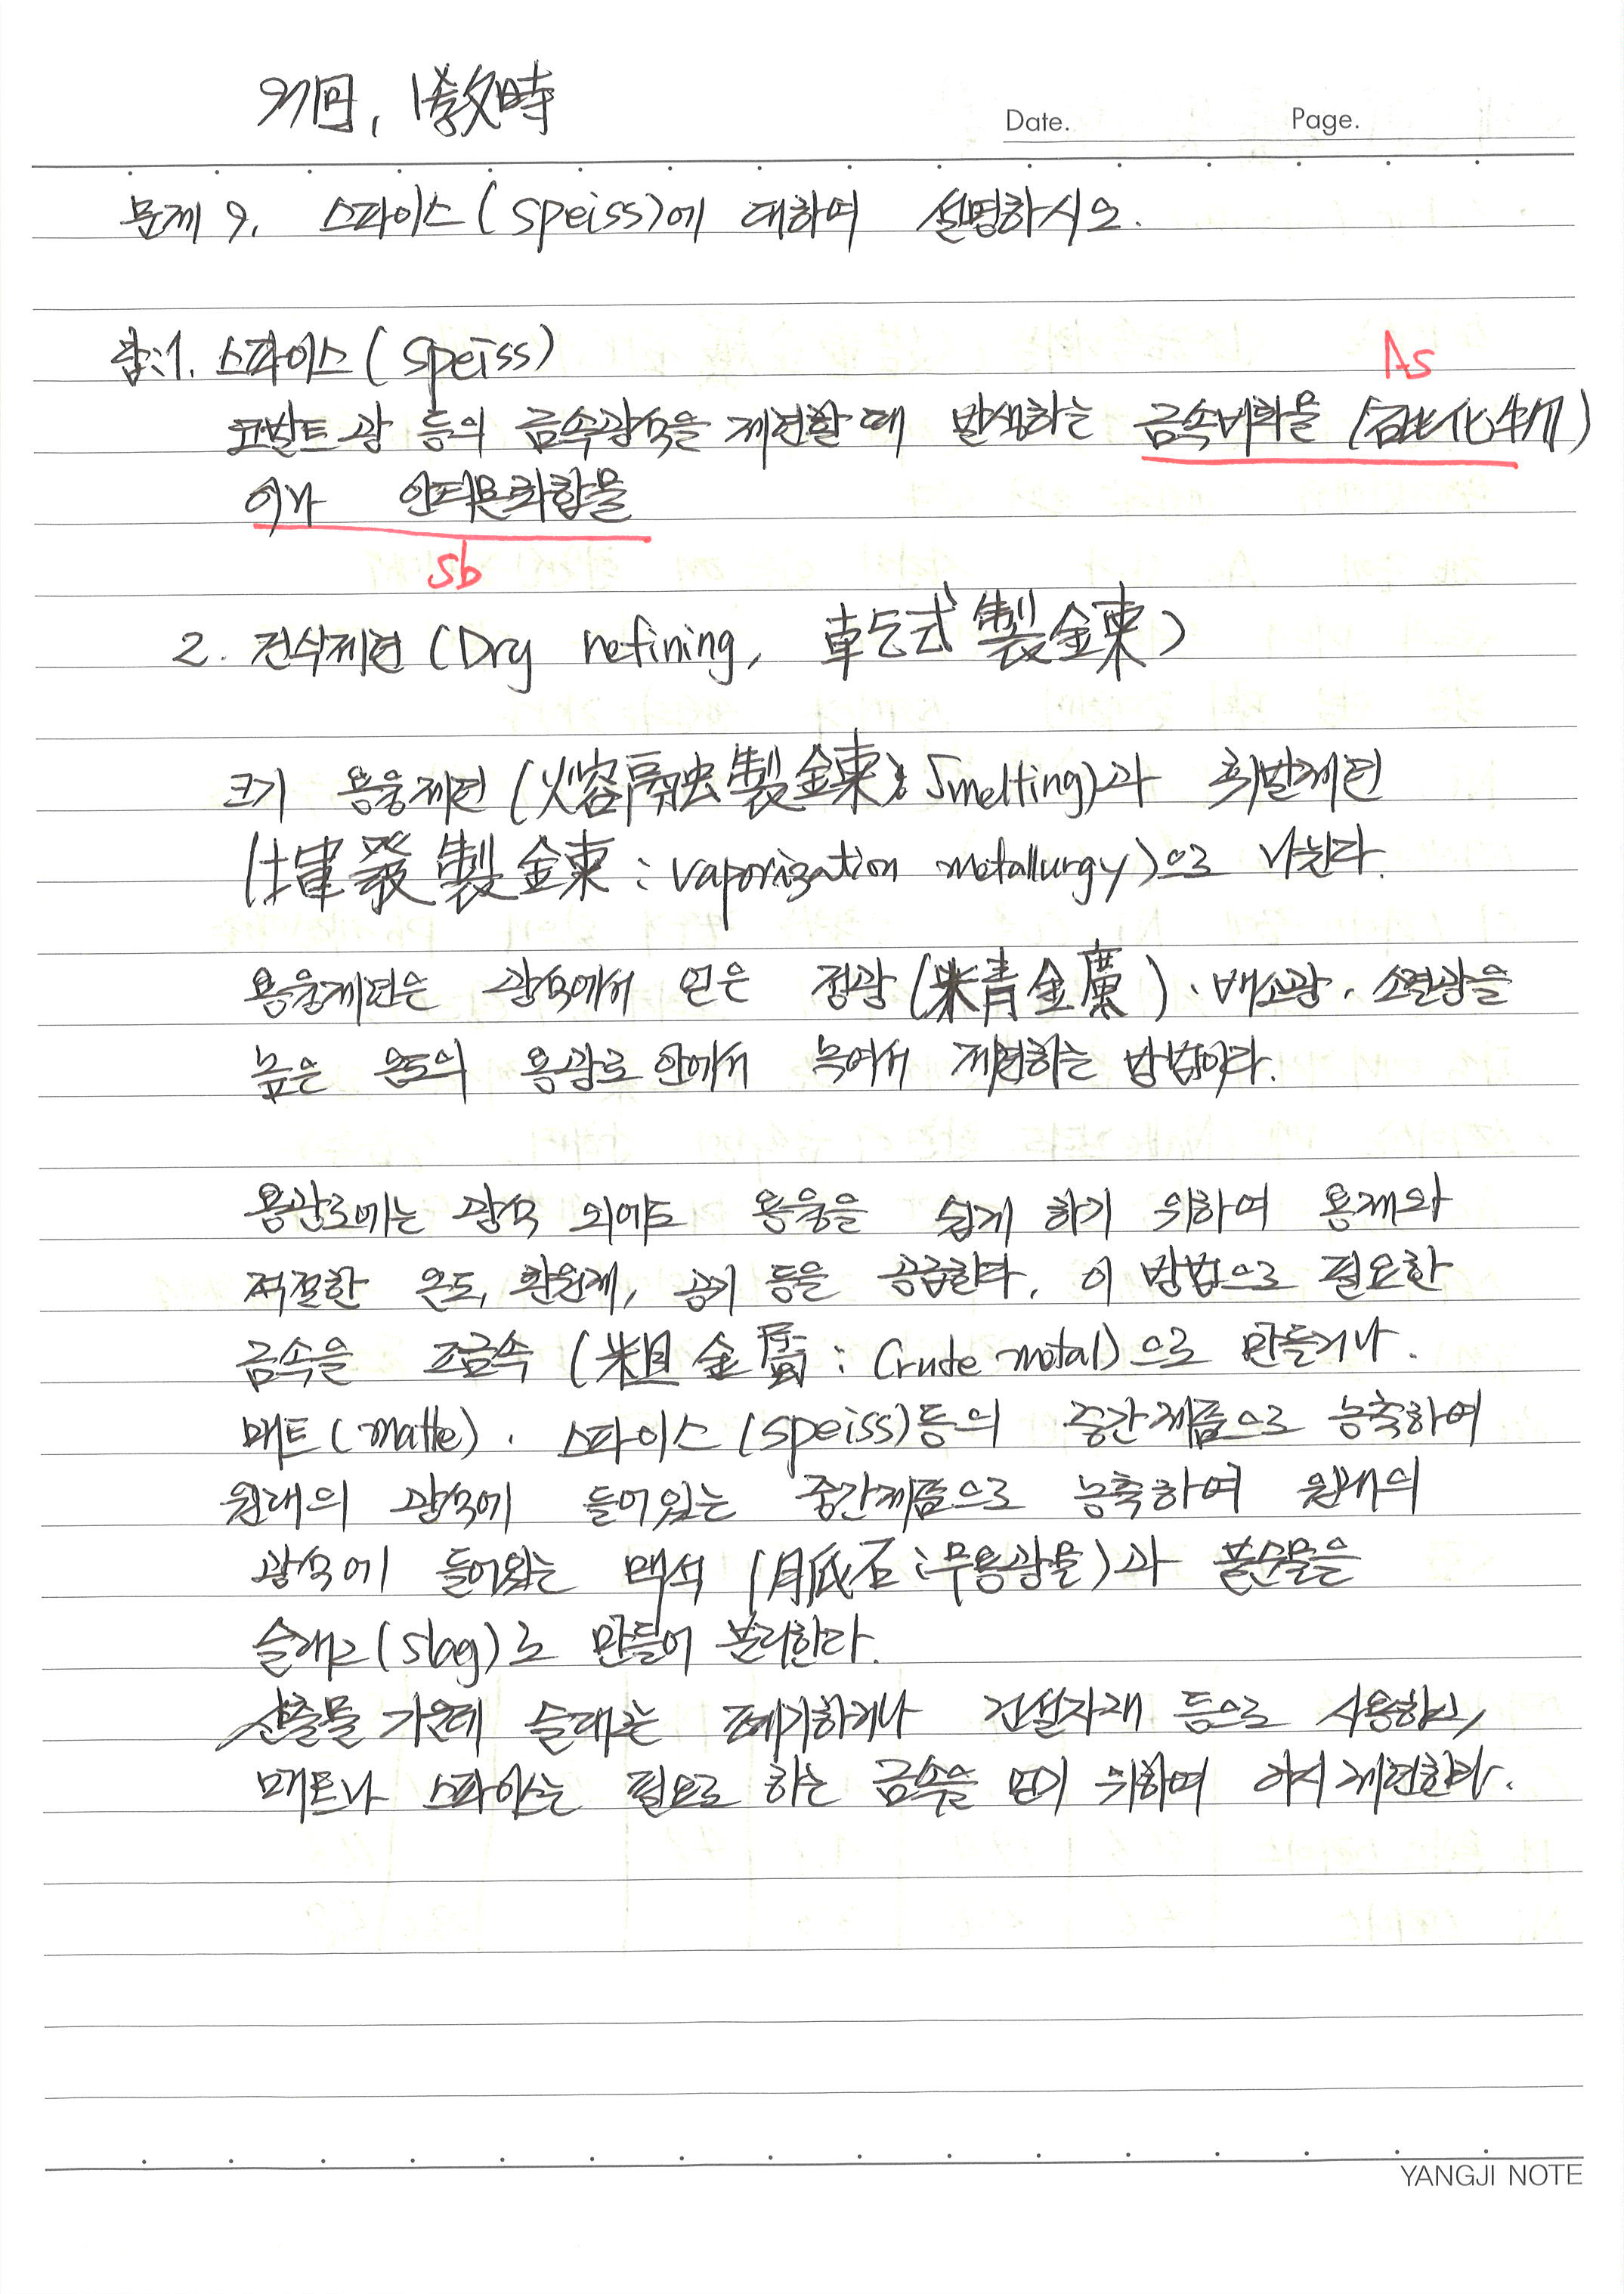 91回, 1敎時
Date. Page.
문제 9. 스파이스(speiss)에 대하여 설명하시오.
답:1. 스파이스(speiss)
As
코발트광 등의 금속광석을 제련할 때 발생하는 금속비화물(砒化物)
이나 안티몬화합물
Sb
2. 건식제련(Dry refining, 乾式製鍊)
크게 용융제련(熔融製鍊: Smelting)과 휘발제련
(揮發製鍊: vaporization metallurgy)으로 나뉜다.
용융제련은 광석에서 얻은 정광(精鑛)·배소광·소결광을
높은 온도의 용광로 안에서 녹여서 제련하는 방법이다.
용광로에는 광석 외에도 용융을 쉽게 하기 위하여 용제와
적절한 온도, 환원제, 공기 등을 공급한다. 이 방법으로 필요한
금속을 조금속(粗金屬: Crude metal)으로 만들거나.
매트(matte)·스파이스(speiss)등의 중간제품으로 농축하여
원래의 광석에 들어있는 중간제품으로 농축하여 원래의
광석에 들어있는 맥석(脈石:무용광물)과 불순물을
슬래그(slag)로 만들어 분리한다.
산출물 가운데 슬래그는 폐기하거나 건설자재 등으로 사용하고,
매트나 스파이스는 필요로 하는 금속을 얻기 위하여 다시 제련한다.
YANGJI NOTE